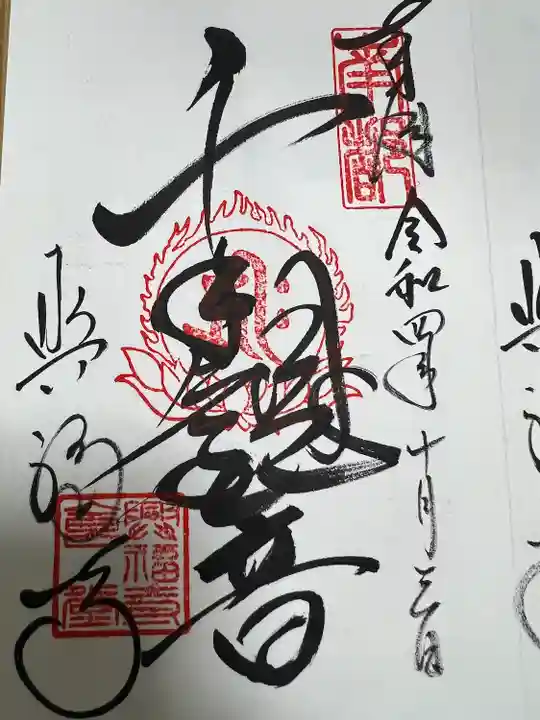 奉拝 令和四年十月三日
千手観音
興福寺
南都
興福寺金堂